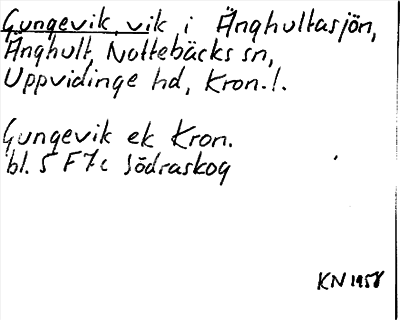 Gungevik, vik i Änghultasjön,
Änghult, Nottebäcks sn,
Uppvidinge hd, Kron.l.
Gungevik ek Kron.
bl. 5 F7c Södraskog
KN 1958